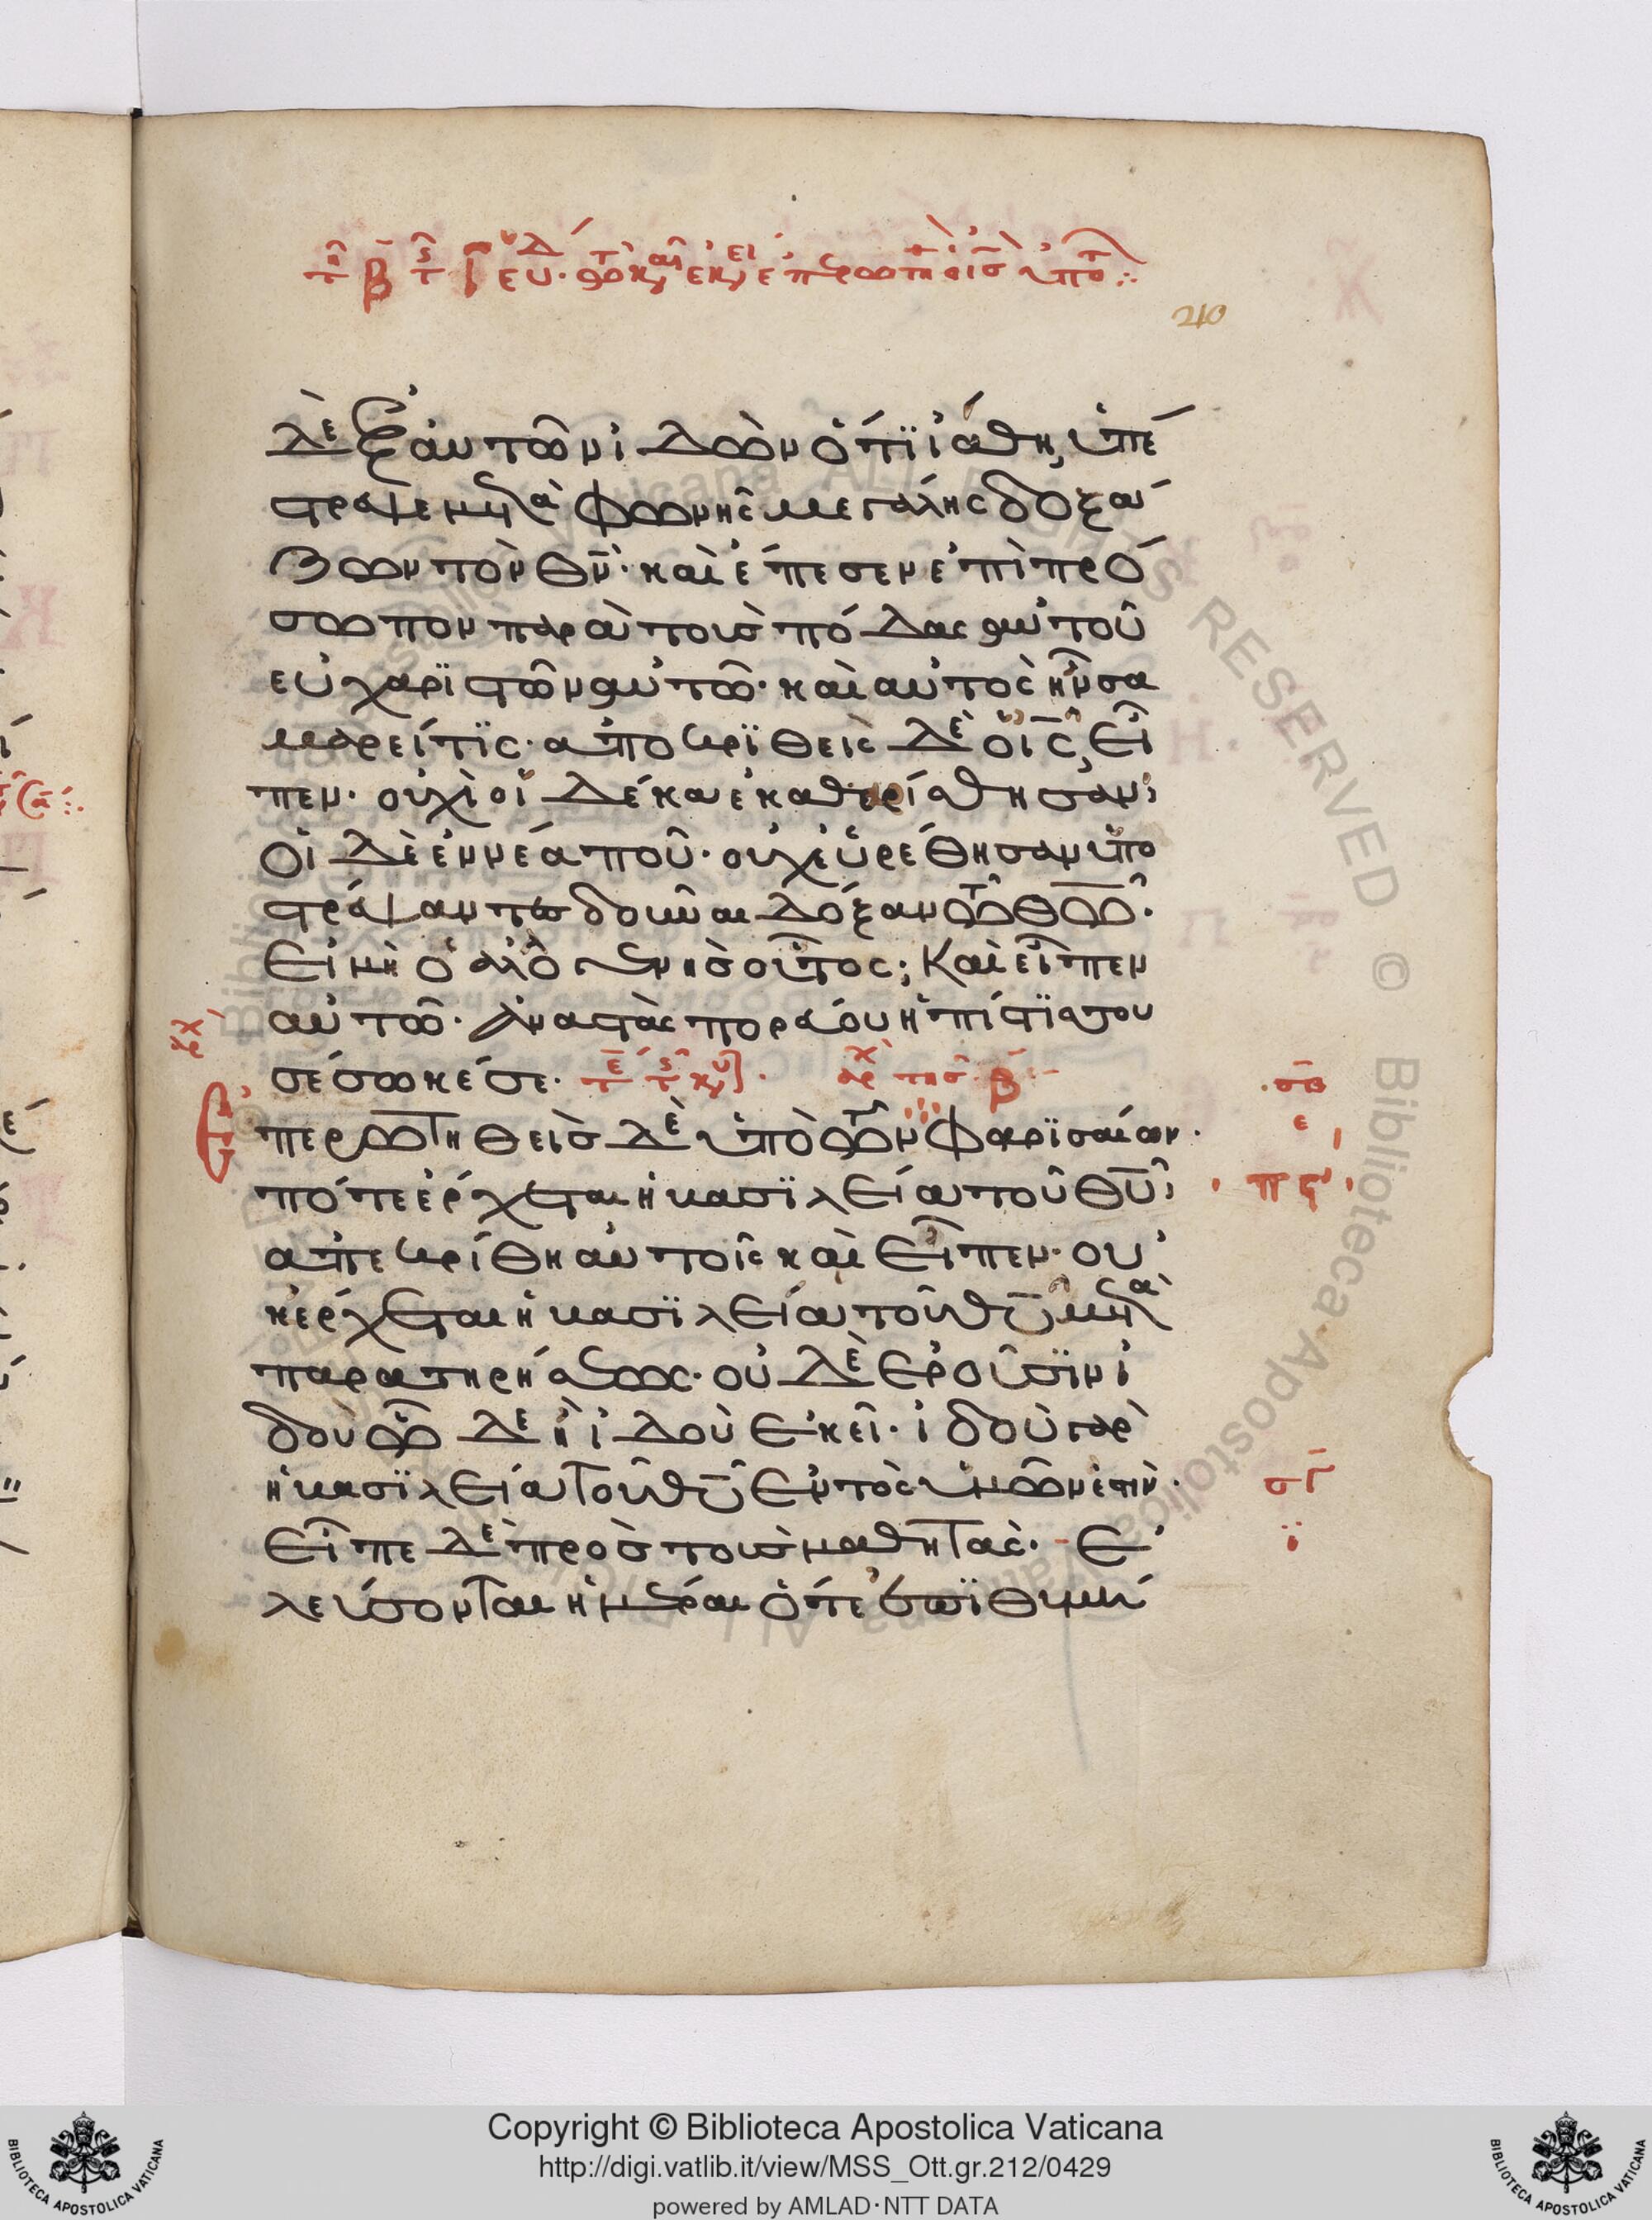 210
δὲ ἐξ αὐτῶν ἰδὼν ὅτι ἰάθη, ὑπέ
στρεψεν μετὰ φωνῆς μεγάλης δοξά
ζων τὸν θ̅ν̅· καὶ ἔπεσεν ἐπὶ πρό
σωπον παρὰ τοὺς πόδας αὐτοῦ
εὐχαριστῶν αὐτῶ· καὶ αὐτὸς ἦν σα
μαρείτις· ἀποκριθεὶς δὲ ὁ ι̅ς̅, εἶ
πεν· οὐχὶ οἱ δέκα ἐκαθερίσθησαν;
οἱ δὲ ἐννέα ποῦ· οὐχ εὑρέθησαν ὑπο
στρέψαντες δοῦναι δόξαν τῶ θ̅ω̅·
εἰ μὴ ὁ ἀλλογενὴς οὗτος; Καὶ εἶπεν
αὐτῶ· ἀναστὰς πορεύου ἡ πίστις σου
σέσωκέ σε·
σβ
ε
Ἐπερωτηθεὶς δὲ ὑπὸ τῶν Φαρισαίων·
πότε ἔρχεται ἡ βασιλεία τοῦ θ̅υ̅;
ἀπεκρίθη αὐτοῖς καὶ εἶπεν· οὐ
κ ἔρχεται ἡ βασιλεία τοῦ θ̅υ̅ μετὰ
παρατηρήσεως· οὐδὲ ἐροῦσιν ἰ
δοὺ ὧδε ἢ ἰδοὺ ἐκεῖ· ἰδοὺ γὰρ
ἡ βασιλεία τοῦ θ̅υ̅ ἐντὸς ὑμῶν ἐστίν·
σγ
ϊ
εἶπε δὲ πρὸς τοὺς μαθητάς· ἐ
λεύσονται ἡμέραι ὅτε ἐπιθυμή
Copyright © Biblioteca Apostolica Vaticana
http://digi.vatlib.it/view/MSS_Ott.gr.212/0429
powered by AMLAD·NTT DATA